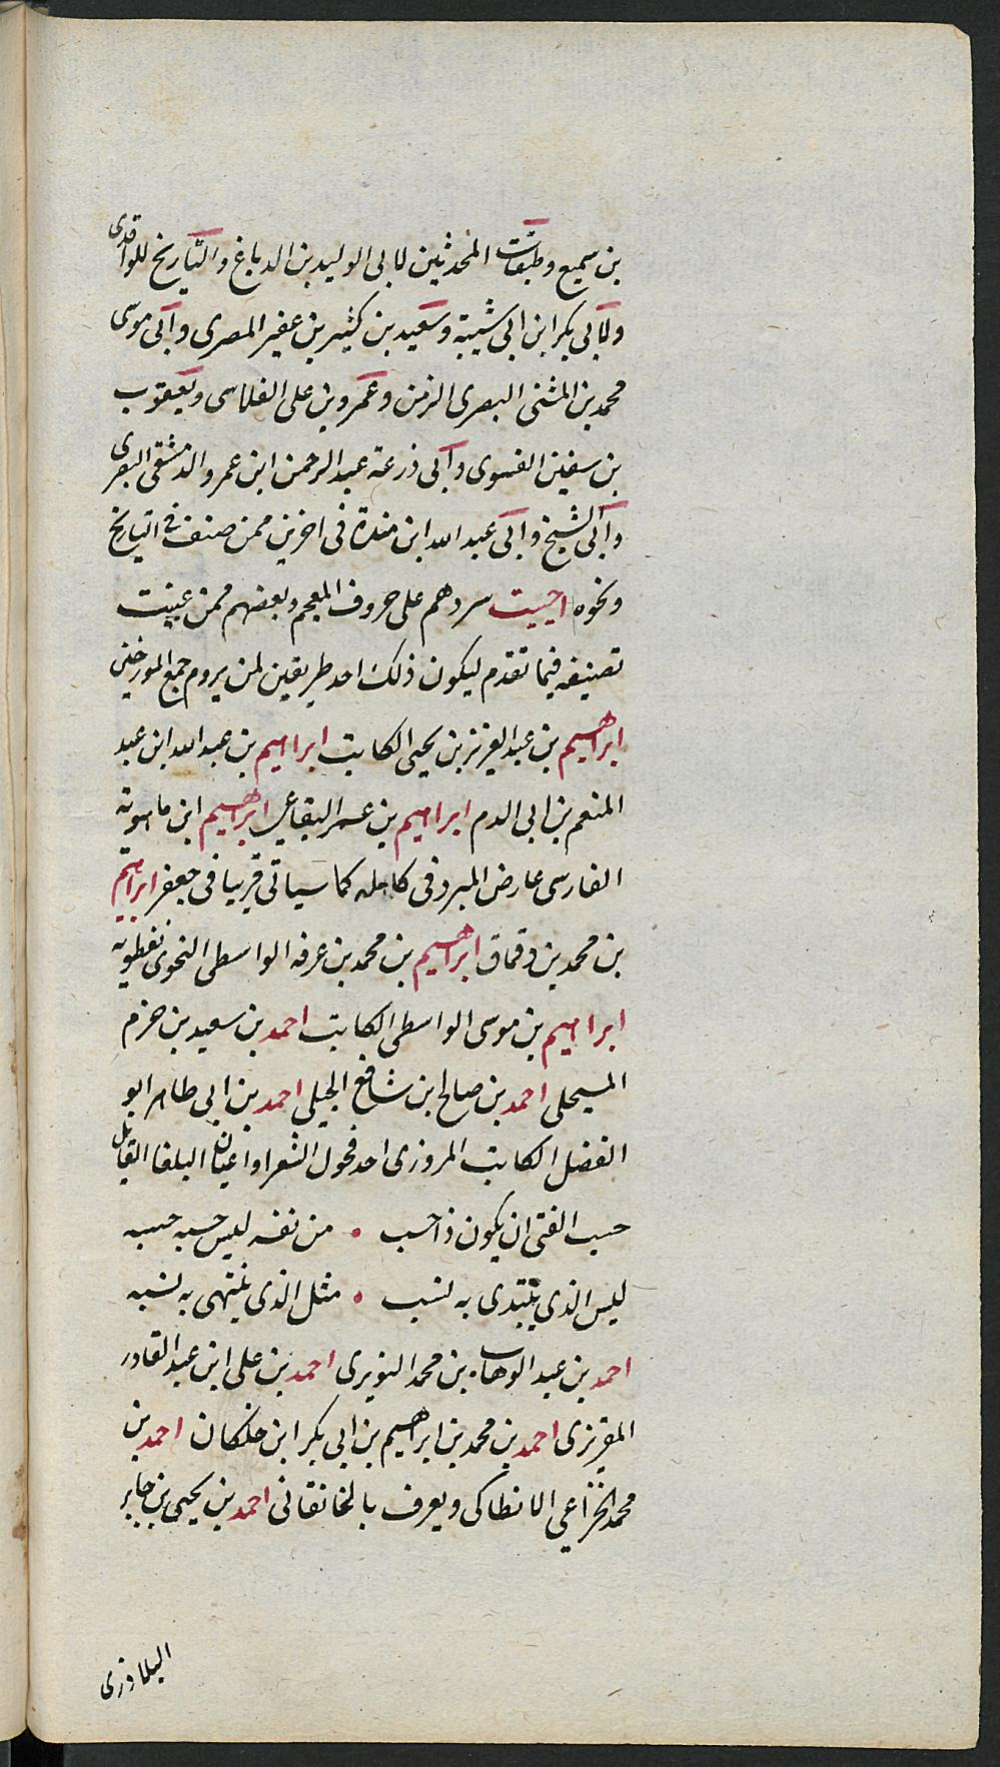 بن سميع وطبقات المحدثين لابى الوليد بن الدباغ والتاريخ للواقدى
ولابى بكر ابن ابى شيبة وسعيد بن كثير بن عفير المصرى وابى موسى
محمد بن المثنى البصرى الزمن وعمرو بن على الفلاسى ويعقوب
بن سفين الفسوى وابى ذرعة عبد الرحمن ابن عمرو الدمشقى البصرى
وابى الشيخ وابى عبد الله ابن مندة فى اخرين ممن صنف فى التاريخ
ونحوه احببت سردهم على حروف المعجم وبعضهم ممن عينت
تصنيفه فيما تقدم ليكون ذلك احد طريقين لمن يروم جمع المورخين
ابراهيم بن عبد العزيز بن يحيى الكاتب ابراهيم بن عبد الله ابن عبد
المنعم بن ابى الدم ابراهيم بن عمر البقاعى ابراهيم ابن ماهويه
الفارسى عارض المبرد فى كامله كما سياتى قريبا فى جعفر ابراهيم
بن محمد بن دقماق ابراهيم بن محمد بن عرفه الواسطى النحوى نفطويه
ابراهيم بن موسى الواسطى الكاتب احمد بن سعيد بن حزم
المسيحلى احمد بن صالح ابن شافع الجيلى احمد بن ابى طاهر ابو
الفضل الكاتب المروزى احد فحول الشعرا واعيان البلغا القايل
حسب الفتى ان يكون ذا حسب ۰ من نفسه ليس حسبه حسبه
ليس الذى يبتدى به نسب ۰ مثل الذى ينتهى به نسبه
احمد بن عبد الوهاب بن محمد النويرى احمد بن على ابن عبد القادر
المقريزى احمد بن محمد بن ابراهيم بن ابى بكر ابن خلكان احمد بن
محمد الخزاعي الانطاكى ويعرف بالخانقانى احمد بن يحيى بن جابر
البلاذرى